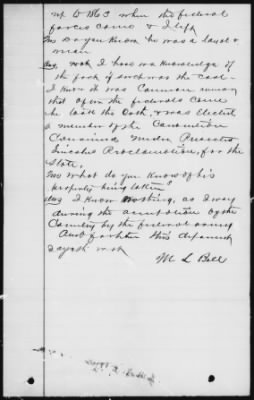 up to 1863 when the federal
forces came & I left
Do you know he was a loyal
man
Ans not I have no knowledge of
the fact if such was the case—
I know it was Common rumor
that after the federals came
he took the Oath, & was Elected
a member of the Convention
Convened under President
Lincolns Proclamation, for the
State,
What do you know of his
property being taken
Ans I know nothing, as I was
during the occupation of the
Country by the federal army
And further this deponent
sayeth not
M L Bell